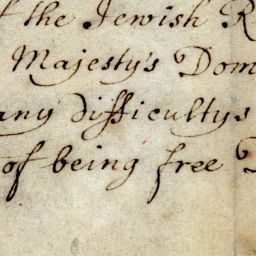 the Jewish R
Majesty's Dom
any difficultys
of being free